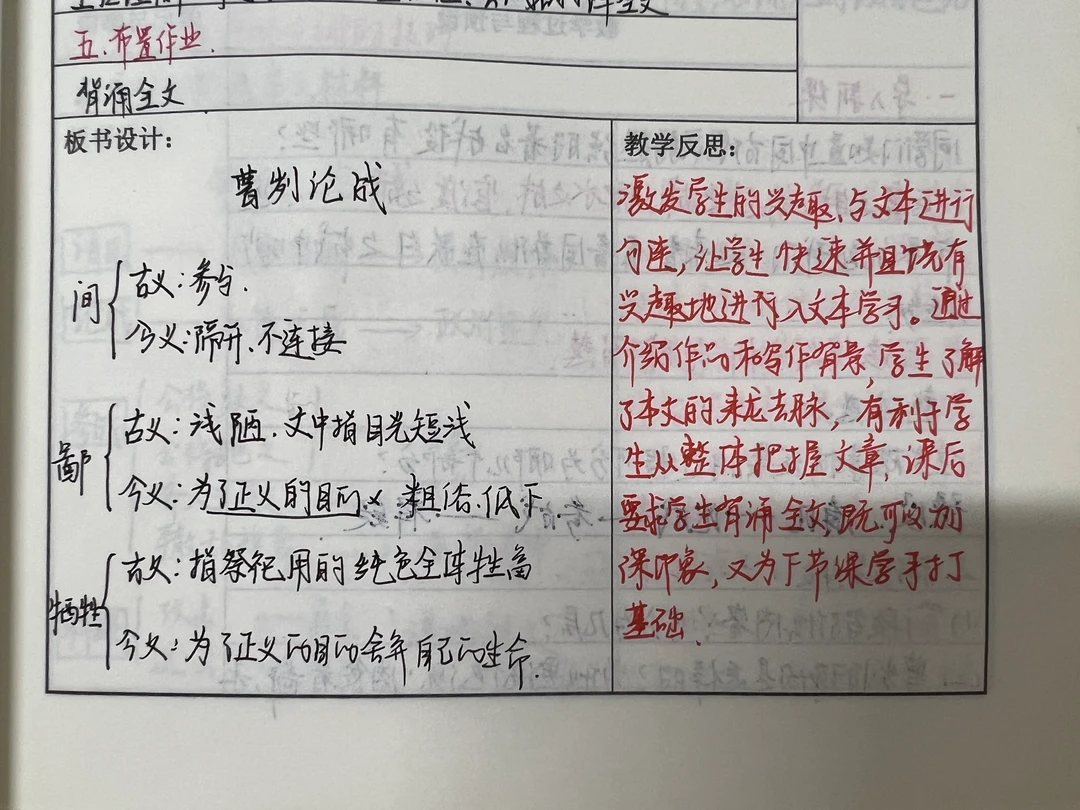 五.布置作业.
背诵全文
板书设计:
曹刿论战
间
古义:参与.
今义:隔开、不连接
鄙
古义:浅陋.文中指目光短浅
今义:为了正义的目的 粗俗.低下.
牺牲
古义:指祭祀用的纯色全体牲畜
今义:为了正义的目的舍弃自己的生命.
教学反思:
激发学生的兴趣,与文本进行
勾连,让学生快速并且饶有
兴趣地进行入文本学习。通过
介绍作品和写作背景,学生了解
了本文的来龙去脉,有利于学
生从整体把握文章,课后
要求学生背诵全文,既可以加
深印象,又为下节课学习打
基础.